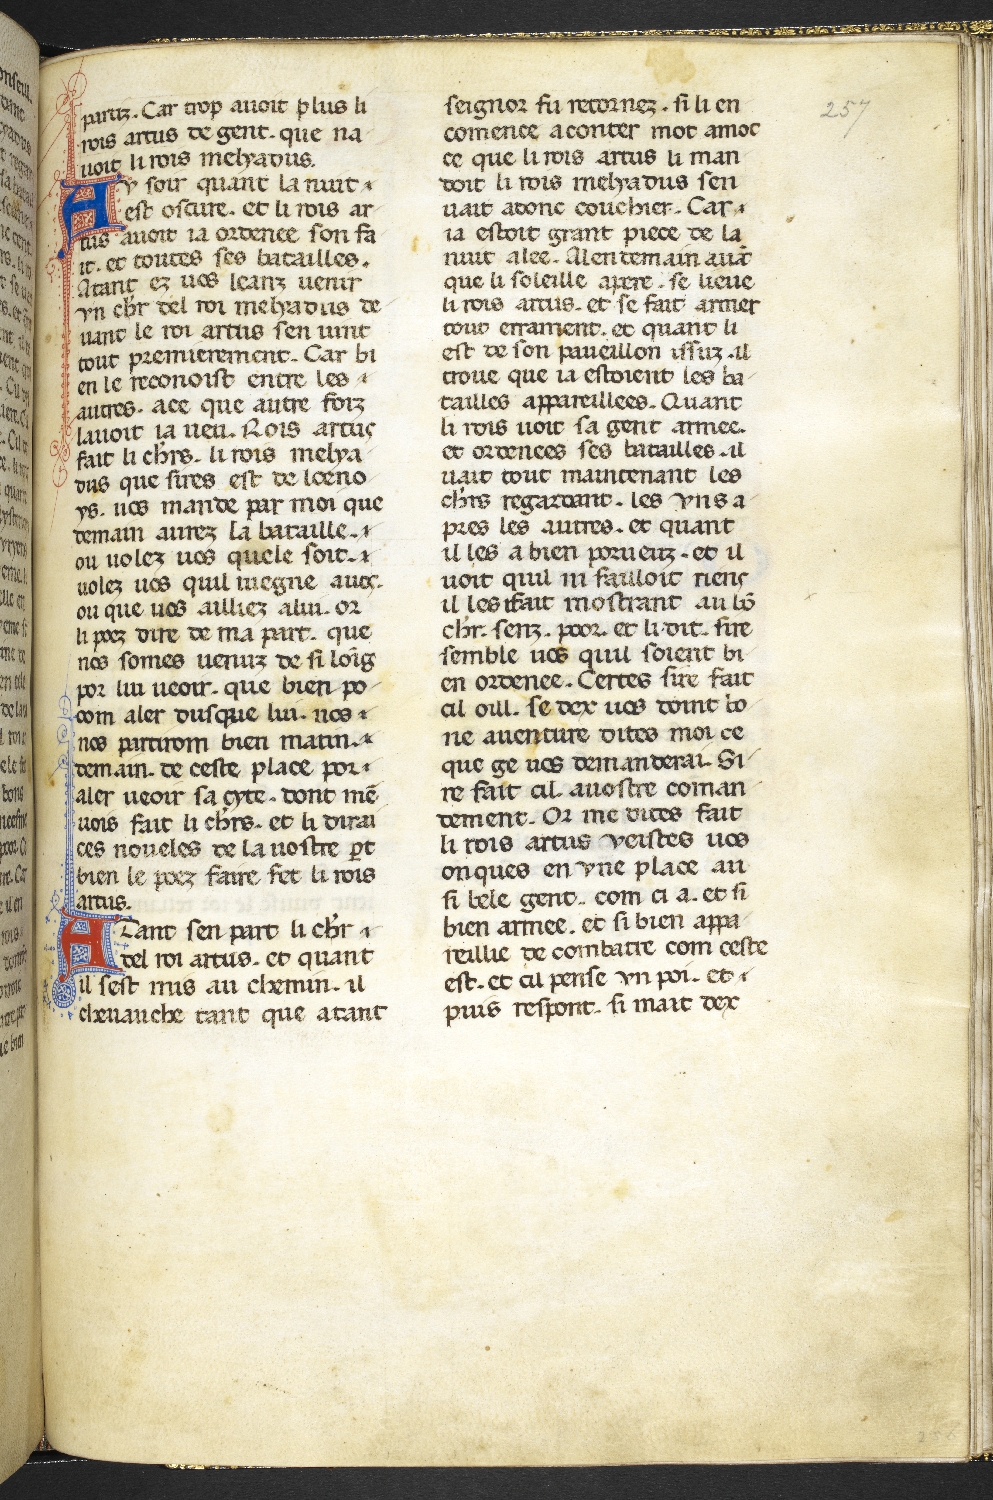 257
partiz. Car trop auoit plus li
rois artus de gent. que na
uoit li rois melyadus.
Ay soir quant la nuit
est oscure. et li rois ar
tus auoit ia ordenee son fa
it. et toutes ses batailles.
Atant ez uos leanz uenir
yn chr del roi melyadus de
uant le roi artus sen uint
tout premierement. Car bi
en le reconoist entre les
autres. ace que autre foiz
lauoit ia ueu. Rois artus
fait li chrs. li rois melya
dus que sires est de loeno
ys. uos mande par moi que
demain aurez la bataille.
ou uolez uos quele soit.
uolez uos quil uiegne auos.
ou que uos ailliez alui. or
li poez dire de ma part. que
nos somes uenuz de si loig
por lui ueoir. que bien po
om aler dusque lui. nos
nos partirom bien matin.
demain. de ceste place por
aler ueoir sa cyte. dont mē
uois fait li chrs. et li dirai
ces noueles de la uostre pt
bien le poez faire fet li rois
artus.
ATant sen part li chr
del roi artus. et quant
il sest mis au chemin. il
cheuauche tant que atant
seignor fu retornez. si li en
comence aconter mot amot
ce que li rois artus li man
doit li rois melyadus sen
uait adonc couchier. Car
ia estoit grant piece de la
nuit alee. Alendemain auāt
que li soleille apere. se lieue
li rois artus. et se fait armer
tout errament. et quant li
est de son paueillon issuz. il
troue que ia estoient les ba
tailles appareillees. Quant
li rois uoit sa gent armee.
et ordenees ses batailles. il
uait tout maintenant les
chrs regardant. les yns a
pres les autres. et quant
il les a bien porueuz. et il
uoit quil ni failloit riens
il les fait mostrant au bō
chr. senz. poor. et li dit. sire
semble uos quil soient bi
en ordenee. Certes sire fait
cil oill. se dex uos doint bo
ne auenture dites moi ce
que ge uos demanderai. Si
re fait cil. auostre coman
dement. Or me dites fait
li rois artus veistes uos
onques en yne place au
si bele gent. com ci a. et si
bien armee. et si bien appa
reillie de combatre com ceste
est. et cil pense yn poi. et
puis respont. si mait dex